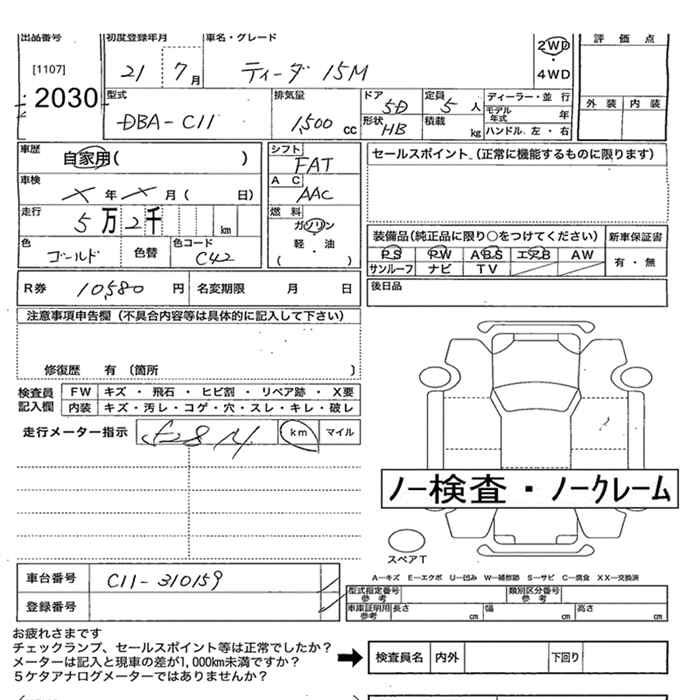 出品番号 初度登録年月 車名・グレード 2WD 評価点
[1107] 21 7月 ティーダ 15M ・ 4WD
2030 型式 排気量 ドア 5D 定員 5人 ディーラー・並行 外装 内装
DBA-C11 1,500cc 形状 HB 積載 kg モデル年式 年
ハンドル 左・右
車歴 自家用( ) シフト FAT セールスポイント (正常に機能するものに限ります)
車検 年 月( 日) AC AAC
走行 5万2千 km 燃料 ガソリン
軽・油
( )
色 ゴールド 色替 色コード C42
装備品(純正品に限り○をつけてください) 新車保証書
PS PW ABS エアB AW 有・無
サンルーフ ナビ TV
R券 10,580円 名変期限 月 日 後日品
注意事項申告欄(不具合内容等は具体的に記入して下さい)
修復歴 有(箇所 )
検査員記入欄 FW キズ・飛石・ヒビ割・リペア跡・X要
内装 キズ・汚レ・コゲ・穴・スレ・キレ・破レ
走行メーター指示 km マイル
ノー検査・ノークレーム
スペアT
車台番号 C11-310159
A―キズ E―エクボ U―凹み W―補修跡 S―サビ C―腐食 XX―交換済
登録番号
型式指定番号参考 類別区分番号参考
車庫証明用参考 長さ cm 幅 cm 高さ cm
お疲れさまです
チェックランプ、セールスポイント等は正常でしたか?
メーターは記入と現車の差が1,000km未満ですか?
5ケタアナログメーターではありませんか?
検査員名 内外 下回り